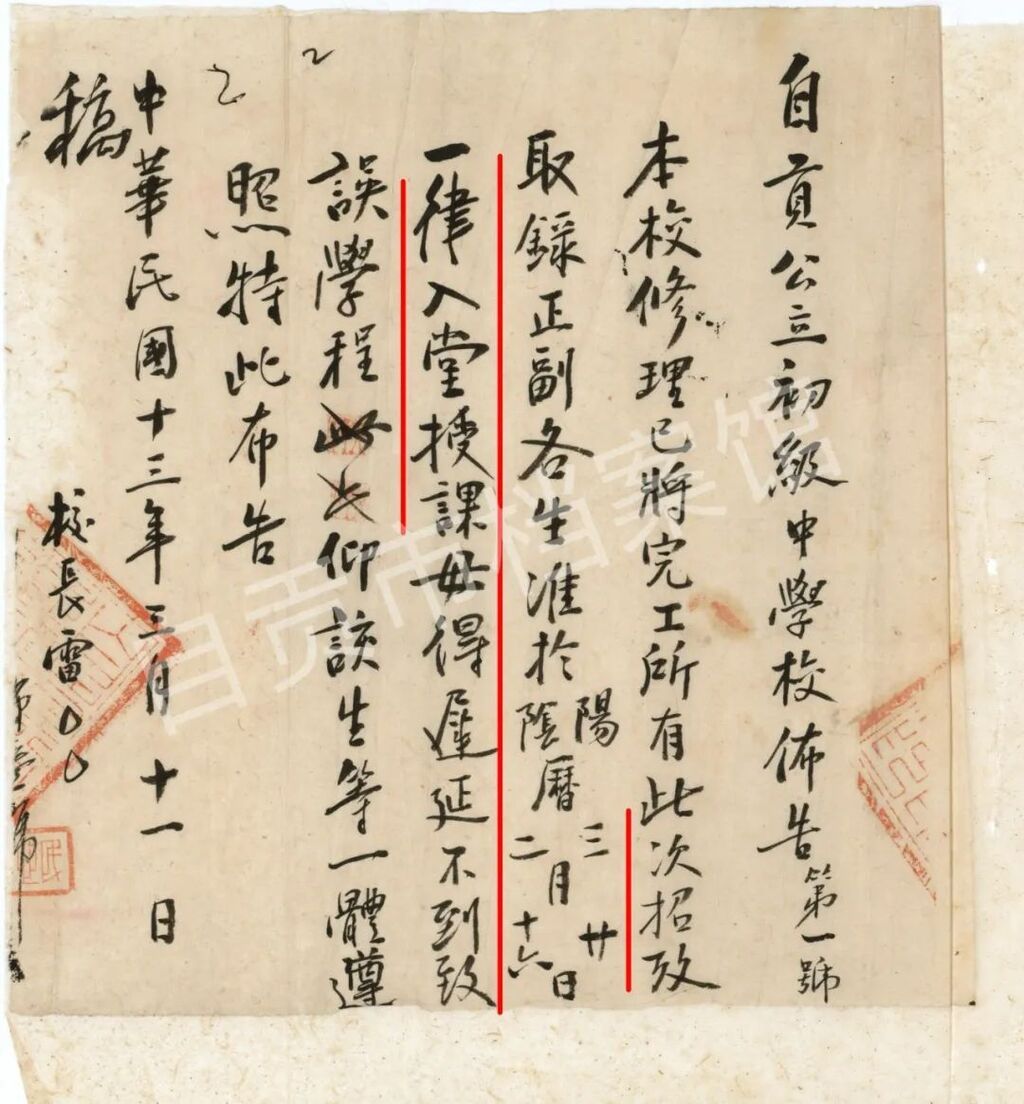 自貢公立初級中學校佈告第一號
本校修理已將完工所有此次招攷
取錄正副各生准於陽陰曆三二月廿十六日
一律入堂授課毋得遲延不到致
誤學程此忐仰該生等一體遵
照特此布告
中華民國十三年三月十一日
校長雷〇〇
稿
自贡市档案馆